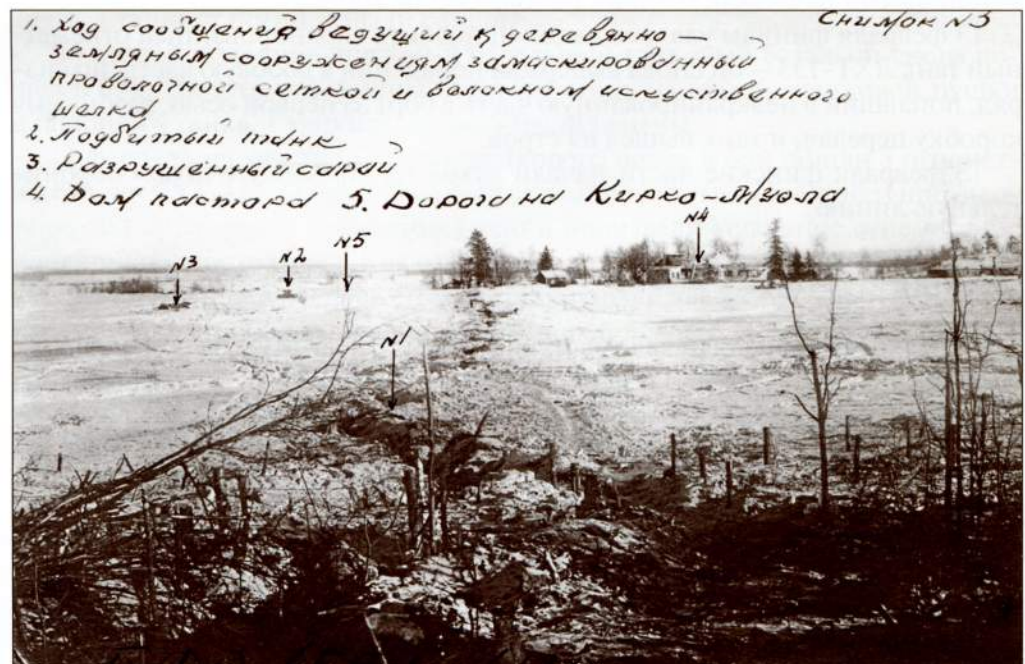 Снимок N3
1. Ход сообщения ведущий к деревянно
земляным сооружениям замаскированный
проволочной сеткой и волокном искуственного
шелка
2. Подбитый танк
3. Разрушенный сарай
4. Дом пастора 5. Дорога на Кирко-Муола
N4
N5
N2
N3
N1